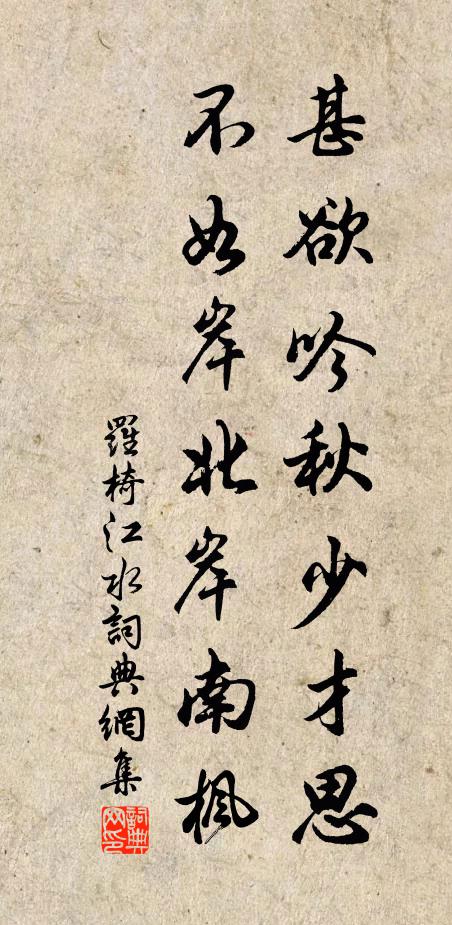 甚欲吟秋少才思
不如岸北岸南楓
羅椅江水詞典網集
詞典網印